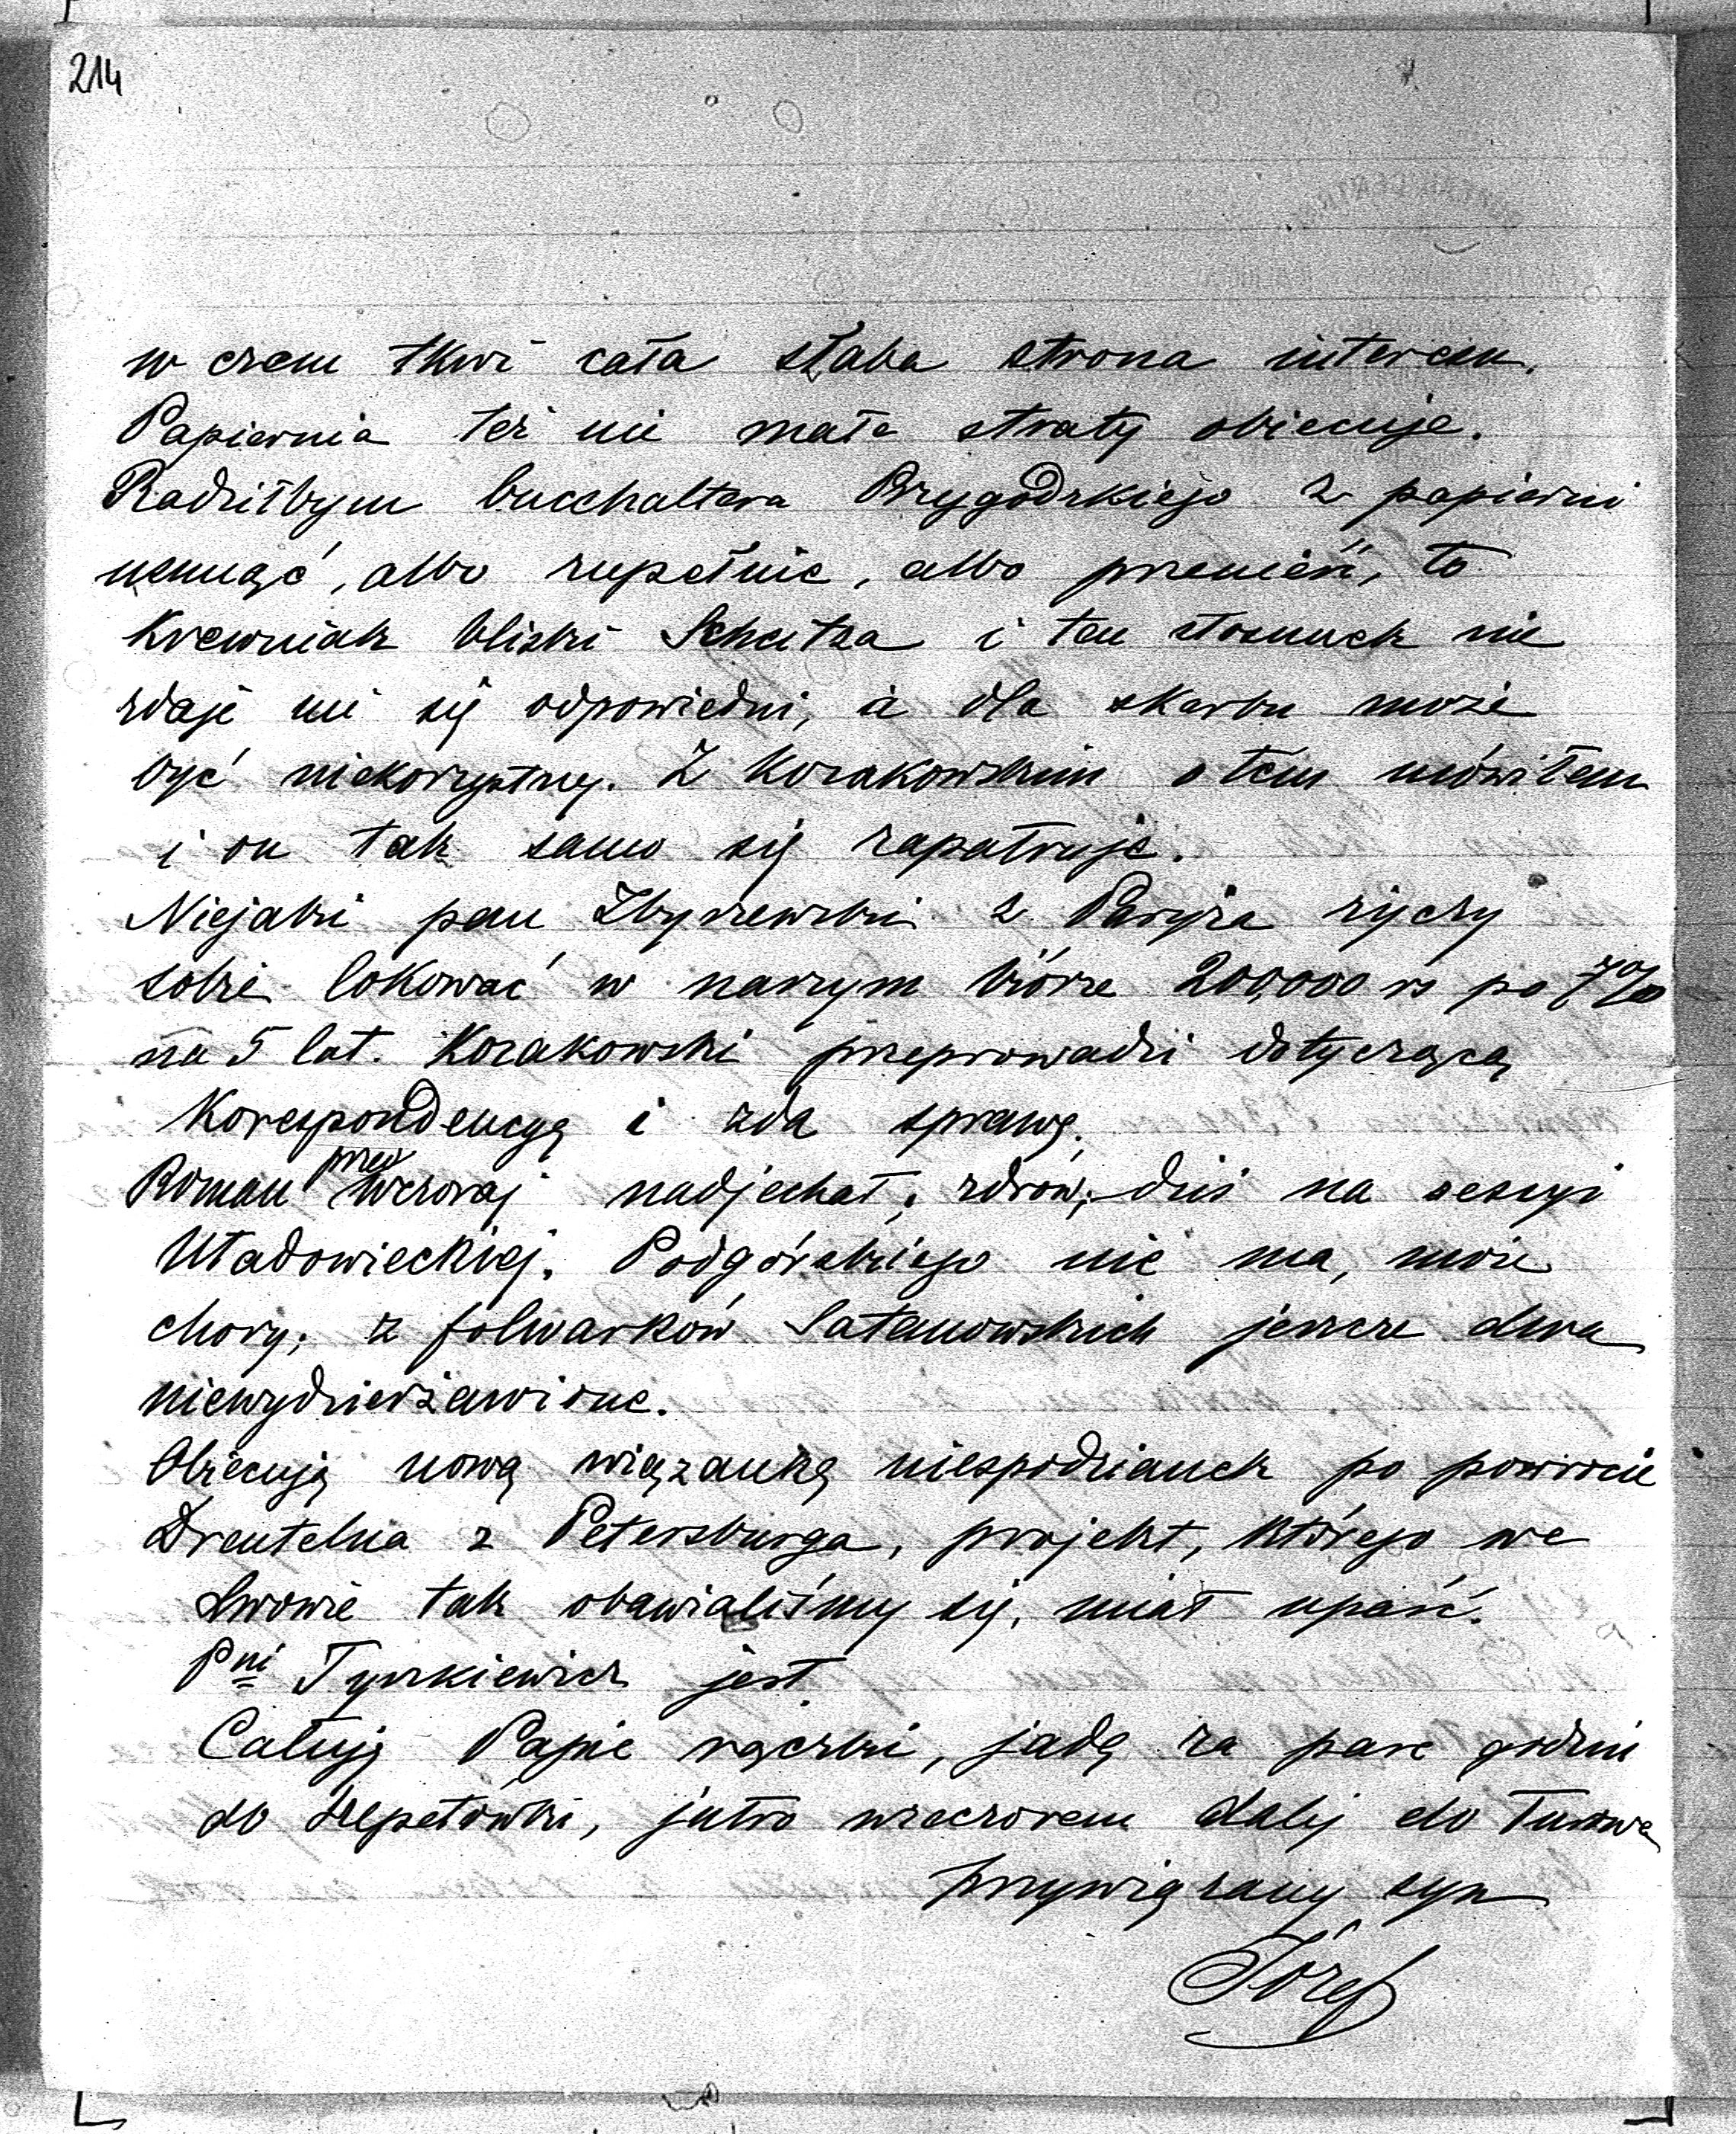 214
w czem tkwi cała słaba strona interesu.
Papiernia też nie małe straty obiecuje.
Radziłbym buchhaltera Przygodzkiego z papierni
usunąć, albo zupełnie, albo przenieść, to
Krewniak bliski Scheitza i ten stosunek nie
zdaje mi się odpowiedni, a dla skarbu może
być niekorzystny. Z Kozakowskim o tem mówiłem
i on tak samo się zapatruje.
Niejaki pan Zbyszewski z Paryża życzy
sobie lokować w naszym biórze 200,000 rs po 7%
na 5 lat. Kozakowski przeprowadzi dotyczącą
Korespondencyę i zda sprawę.
Roman przedwczoraj nadjechał; zdrów; dziś na sessyi
Uładowieckiej. Podgórskiego nie ma, może
chory; z folwarków Satanowskich jeszcze dwa
niewydzierżawione.
Obiecują nową wiązankę niespodzianek po powrocie
Drentelna z Petersburga, projekt, którego we
Lwowie tak obawialiśmy się, miał upaść.
Pni Tyszkiewicz jest
Całuję Papie rączki, jadę za parę godzin
do Szepetówki, jutro wieczorem dalej do Turowa
przywiązany syn
Józef